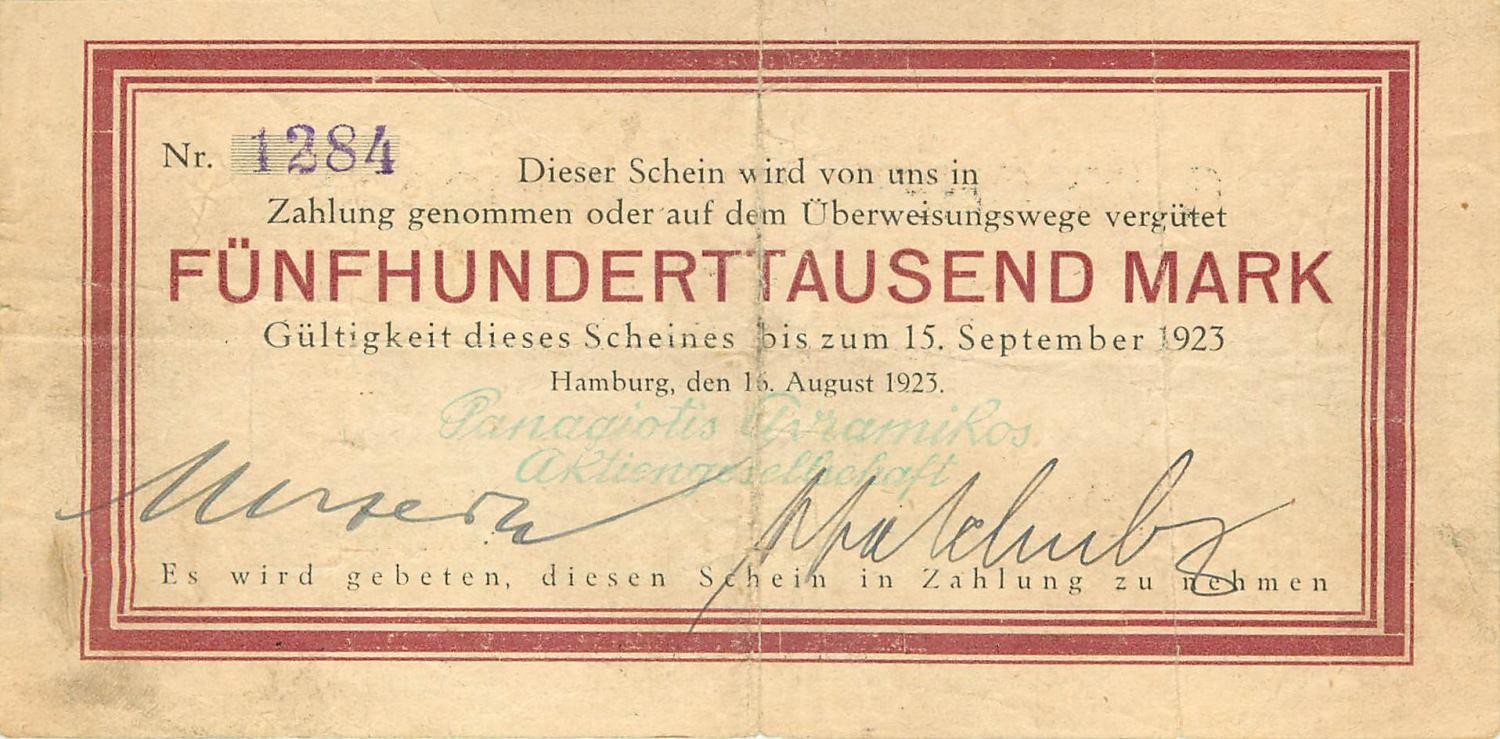 Nr. 1284
Dieser Schein wird von uns in
Zahlung genommen oder auf dem Überweisungswege vergütet
FÜNFHUNDERTTAUSEND MARK
Gültigkeit dieses Scheines bis zum 15. September 1923
Hamburg, den 16. August 1923.
Panagiotis
Aktiengesellschaft
Es wird gebeten, diesen Schein in Zahlung zu nehmen